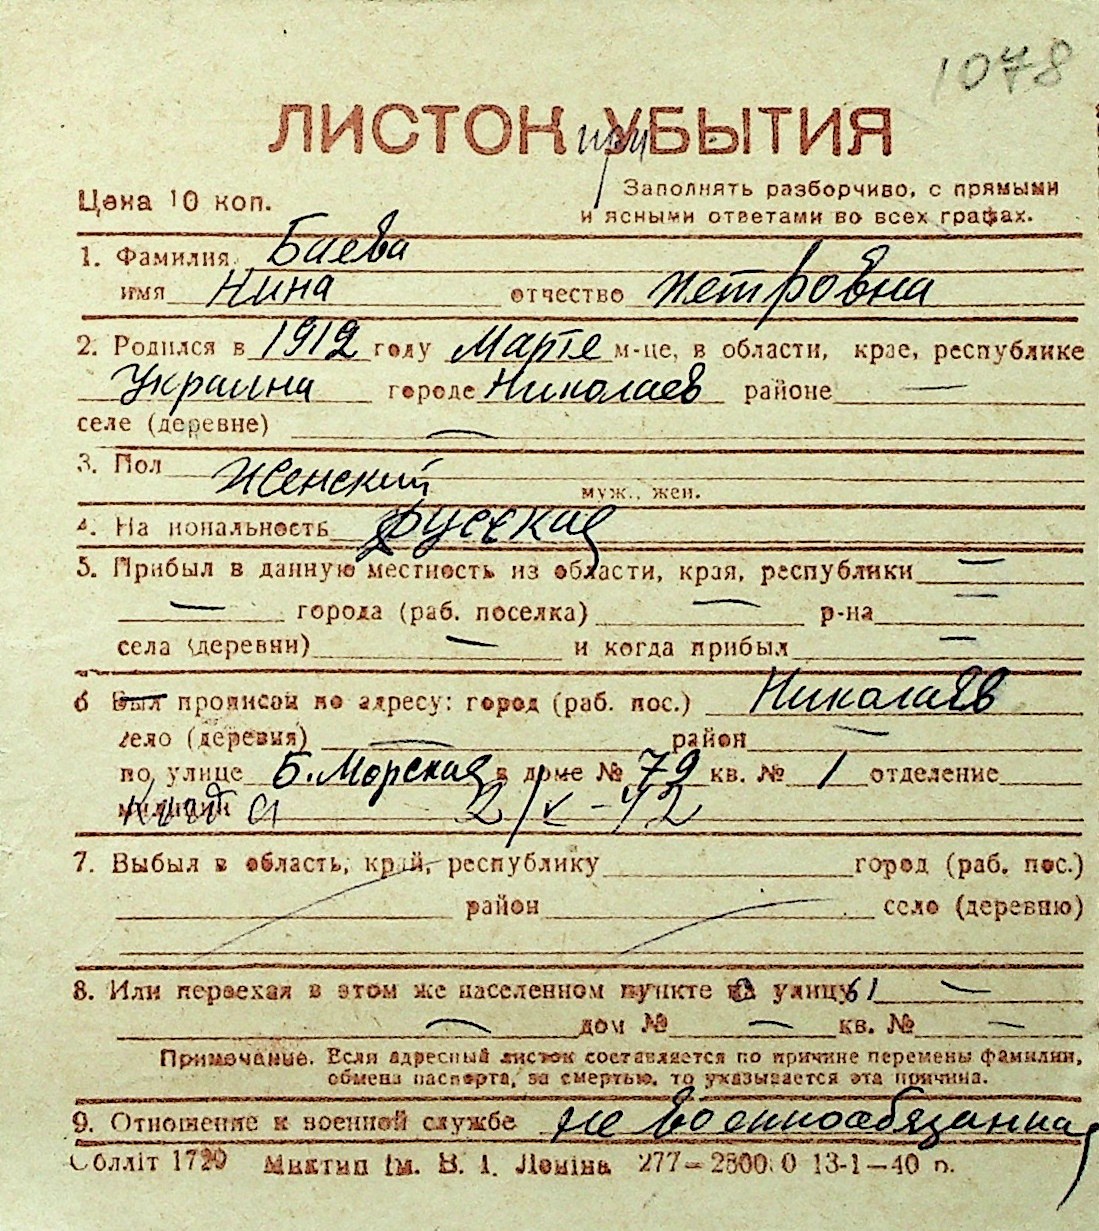 1078
ЛИСТОК при УБЫТИЯ
Цена 10 коп.
Заполнять разборчиво, с прямыми
и ясными ответами во всех графах.
1. Фамилия Баева
имя Нина отчество Петровна
2. Родился в 1912 году Марте м-це, в области, крае, республике
Украина городе Николаев районе —
селе (деревне) —
3. Пол Женский муж., жен.
4. На иональность русская
5. Прибыл в данную местность из области, края, республики —
— города (раб. поселка) — р-на —
села (деревни) — и когда прибыл —
6 Был прописан по адресу: город (раб. пос.) Николаев
село (деревня) — район —
по улице Б. Морская в доме № 79 кв. № 1 отделение
милиции 2/X-42
7. Выбыл в область, край, республику город (раб. пос.)
район село (деревню)
8. Или переехал в этом же населенном пункте на улицу —
— дом № — кв. № —
Примечание. Если адресный листок составляется по причине перемены фамилии,
обмена паспорта, за смертью, то указывается эта причина.
9. Отношение к военной службе не военнообязанная
Облліт 1720 Миктип ім. В. І. Леніна 277—2800 0 13-1—40 р.